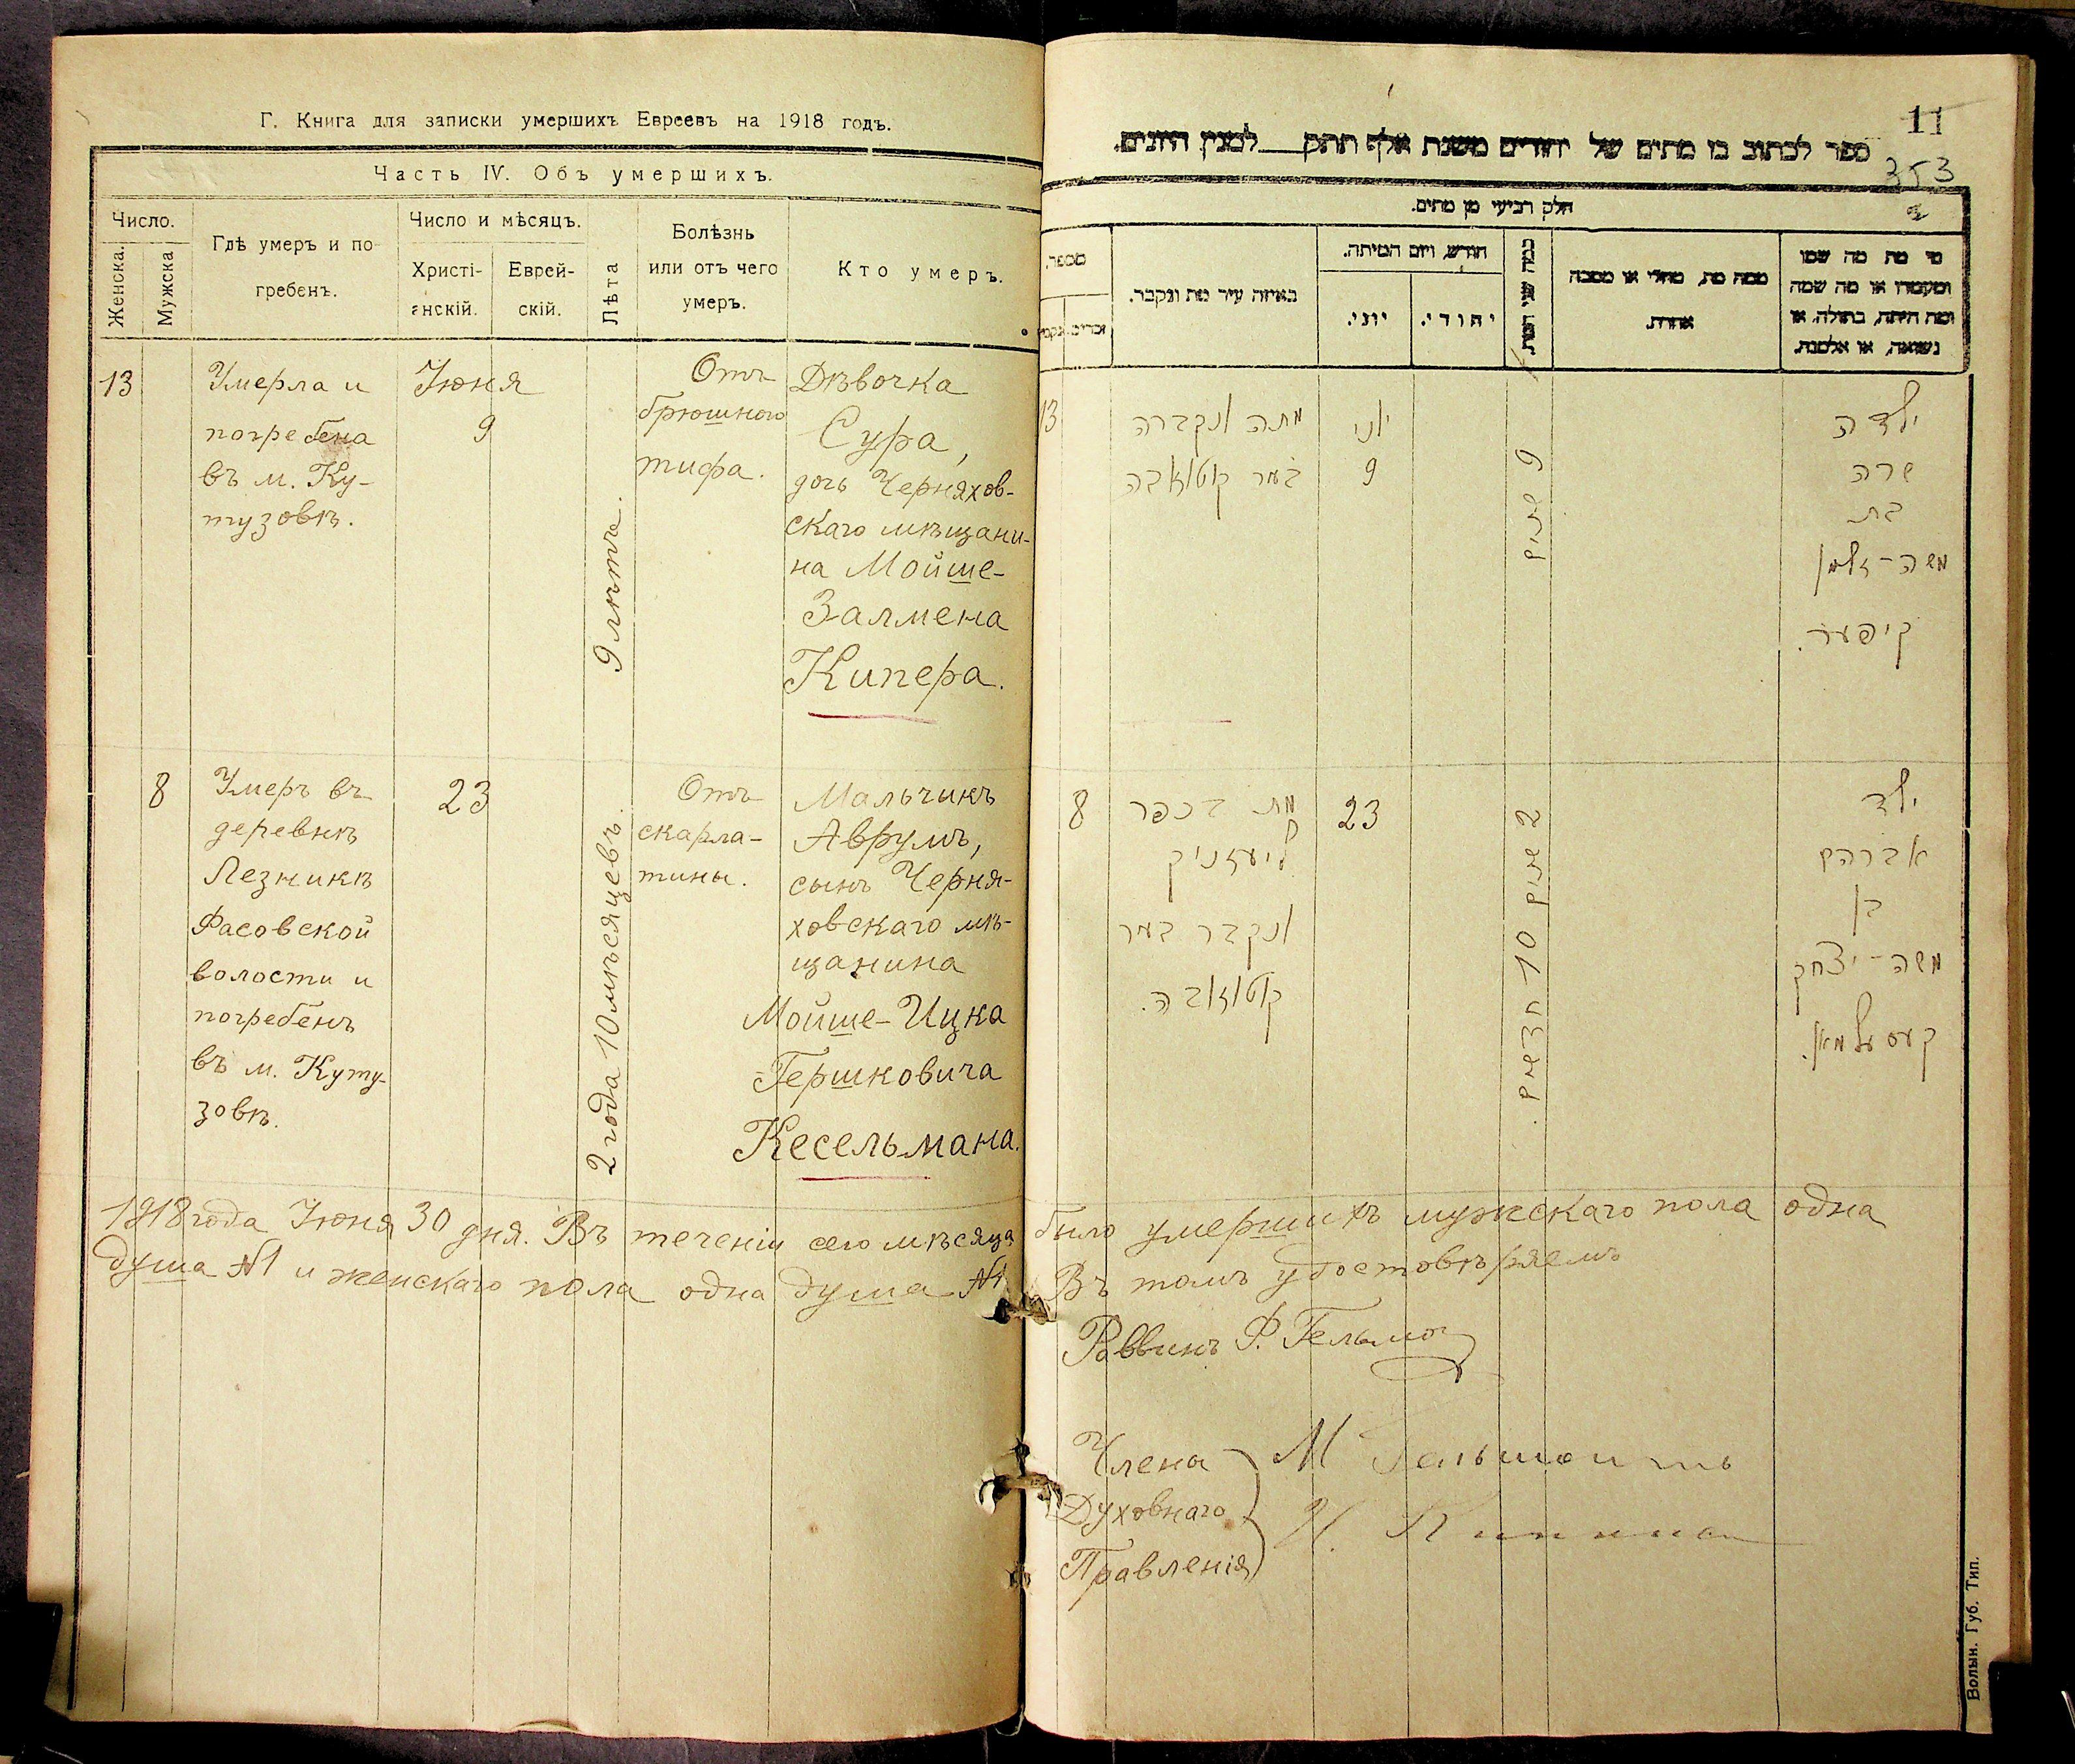 Г. Книга для записки умершихъ Евреевъ на 1918 годъ.
Часть IV. Объ умершихъ.
Число.
Женска.
Мужска
Гдѣ умеръ и по-
гребенъ.
Число и мѣсяцъ.
Христі-
анскій.
Еврей-
скій.
Лѣта
Болѣзнь
или отъ чего
умеръ.
Кто умеръ.
13
Умерла и
погребена
въ м. Ку-
тузовкѣ.
Іюня
9
9 лѣтъ.
Отъ
брюшного
тифа.
Дѣвочка
Сура,
дочь Черняхов-
скаго мѣщани-
на Мойше-
Залмена
Кипера.
8
Умеръ въ
деревнѣ
Лезникѣ
Фасовской
волости и
погребенъ
въ м. Куту-
зовкѣ.
23
2 года 10 мѣсяцевъ.
Отъ
скарла-
тины.
Мальчикъ
Аврумъ,
сынъ Черня-
ховскаго мѣ-
щанина
Мойше-Ицка
Гершковича
Кесельмана.
1918 года Іюня 30 дня. Въ теченіи сего мѣсяца было умершихъ мужскаго пола одна
душа №1 и женскаго пола одна душа №1 Въ томъ удостовѣряемъ
11
353
ספר לכתוב בו מתים של יהודים משנת אלף תתק למנין היונים.
חלק רביעי מן מתים.
מספר.
זכרים.
נקבות
באיזה עיר מת ונקבר.
חודש, ויום המיתה.
יוני.
יהודי.
כמה שני המת.
ממה מת, מחלי או מסבה
אחרת.
מי מת מה שמו
ומעמדו או מה שמה
ומה היתה, בתולה, או
נשואה, או אלמנה.
13
מתה ונקברה
בעיר קוטוזאבקה
יוני
9
9 שנים
ילדה
שרה
בת
משה-זלמן
קיפער.
8
מת בכפר
ליעזניק
ונקבר בעיר
23
2 שנים 10 חדשים.
ילד
אברהם
בן
משה-יצחק
קעסעלמאן.
Раввинъ Ф.
Члена
Духовнаго
Правленія
М
Волын. Губ. Тип.